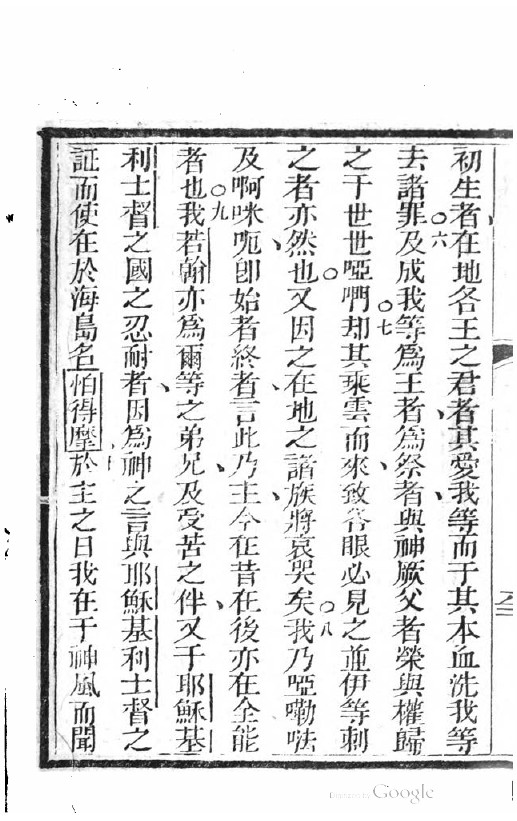 初生者在地各王之君者其愛我等而于其本血洗我等
去諸罪○六及成我等為王者為祭者與神厥父者榮與權歸
之于世世啞們○七却其乘雲而來致各眼必見之並伊等刺
之者亦然也又因之在地之諸族將哀哭矣○八我乃啞嘞㖿
及啊咪呃即始者終者言此乃主今在昔在後亦在全能
者也○九我若翰亦為爾等之弟兄及受苦之伴又于耶穌基
利士督之國之忍耐者因為神之言與耶穌基利士督之
証而使在於海島名怕得摩於主之日我在于神風而聞
Digitized by Google